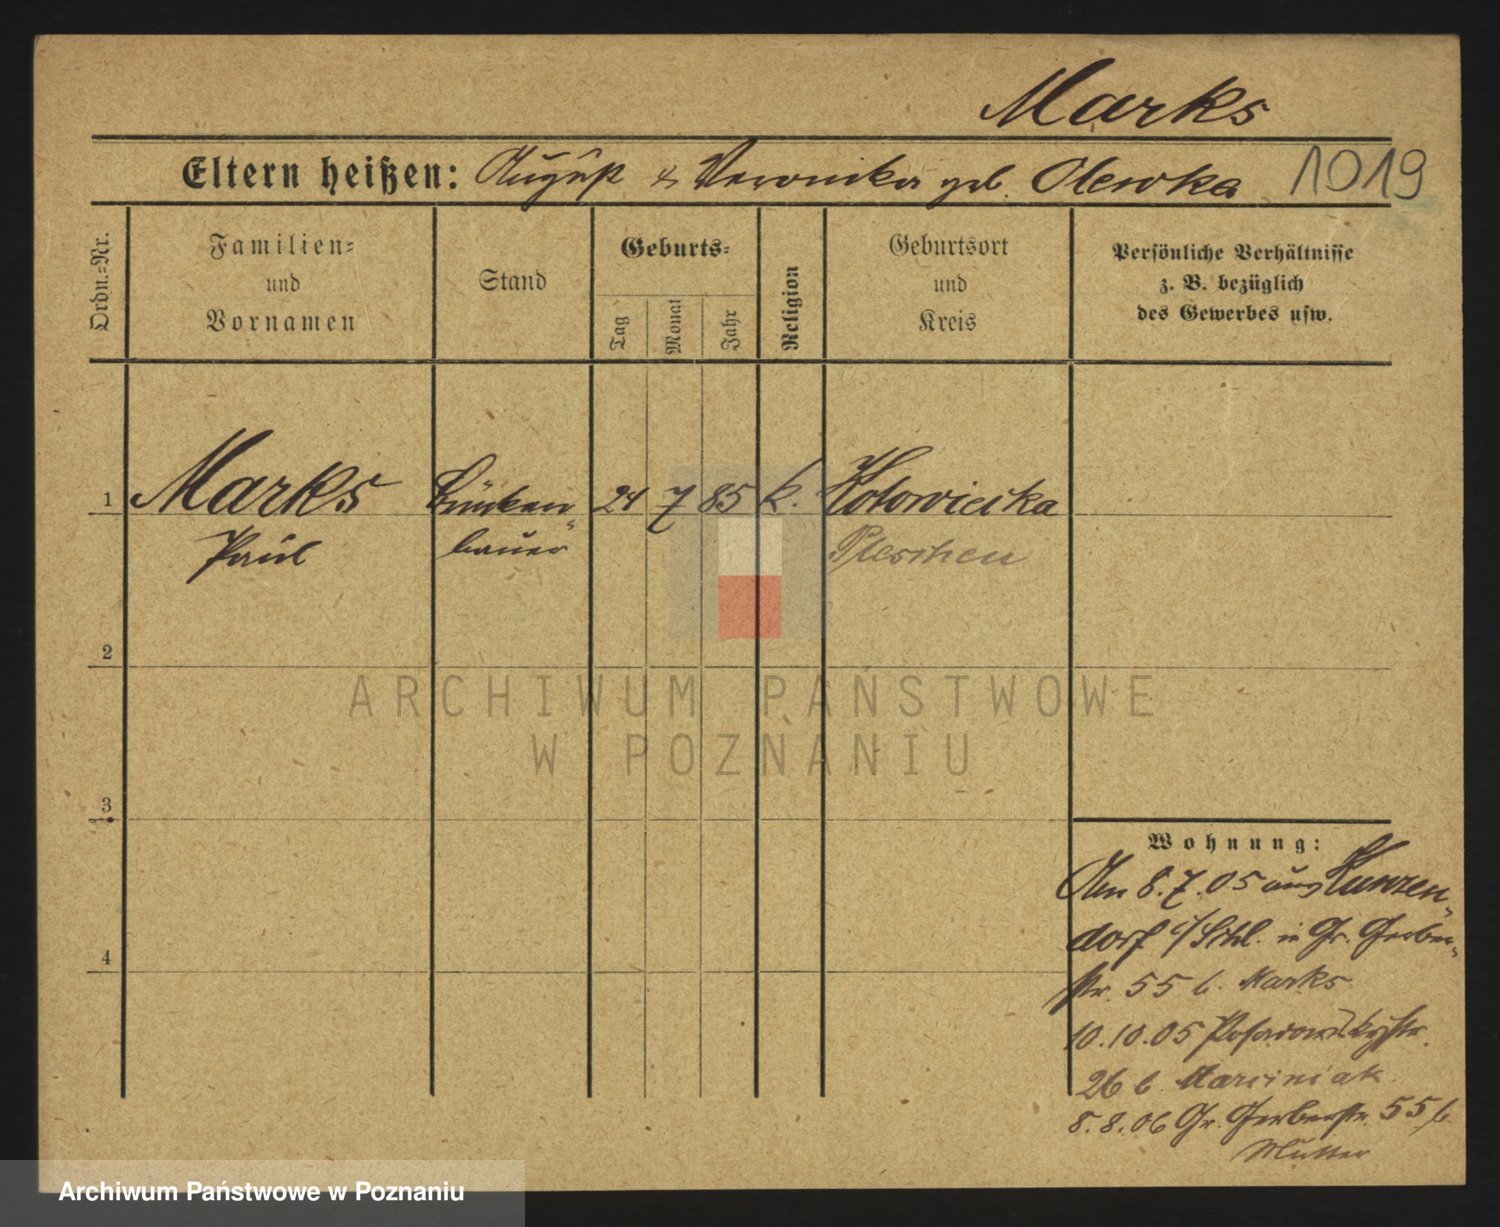 Marks
Eltern heißen: August & Veronika geb. Olewka 1019
Ordn.-Nr.
Familien-
und
Vornamen
Stand
Geburts-
Tag
Monat
Jahr
Religion
Geburtsort
und
Kreis
Persönliche Verhältnisse
z. B. bezüglich
des Gewerbes usw.
1 Marks Brücken 24 7 85 k. Kotowiecka
Paul bauer Pleschen
2
ARCHIWUM PAŃSTWOWE
W POZNANIU
3
Wohnung:
Am 8.7.05 aus Kunzen-
dorf i/Schl. in Gr. Gerber-
str. 55 b. Marks
10.10.05 Posadowskystr.
26 b. Marciniak
8.8.06 Gr. Gerberstr. 55 b.
Mutter
4
Archiwum Państwowe w Poznaniu